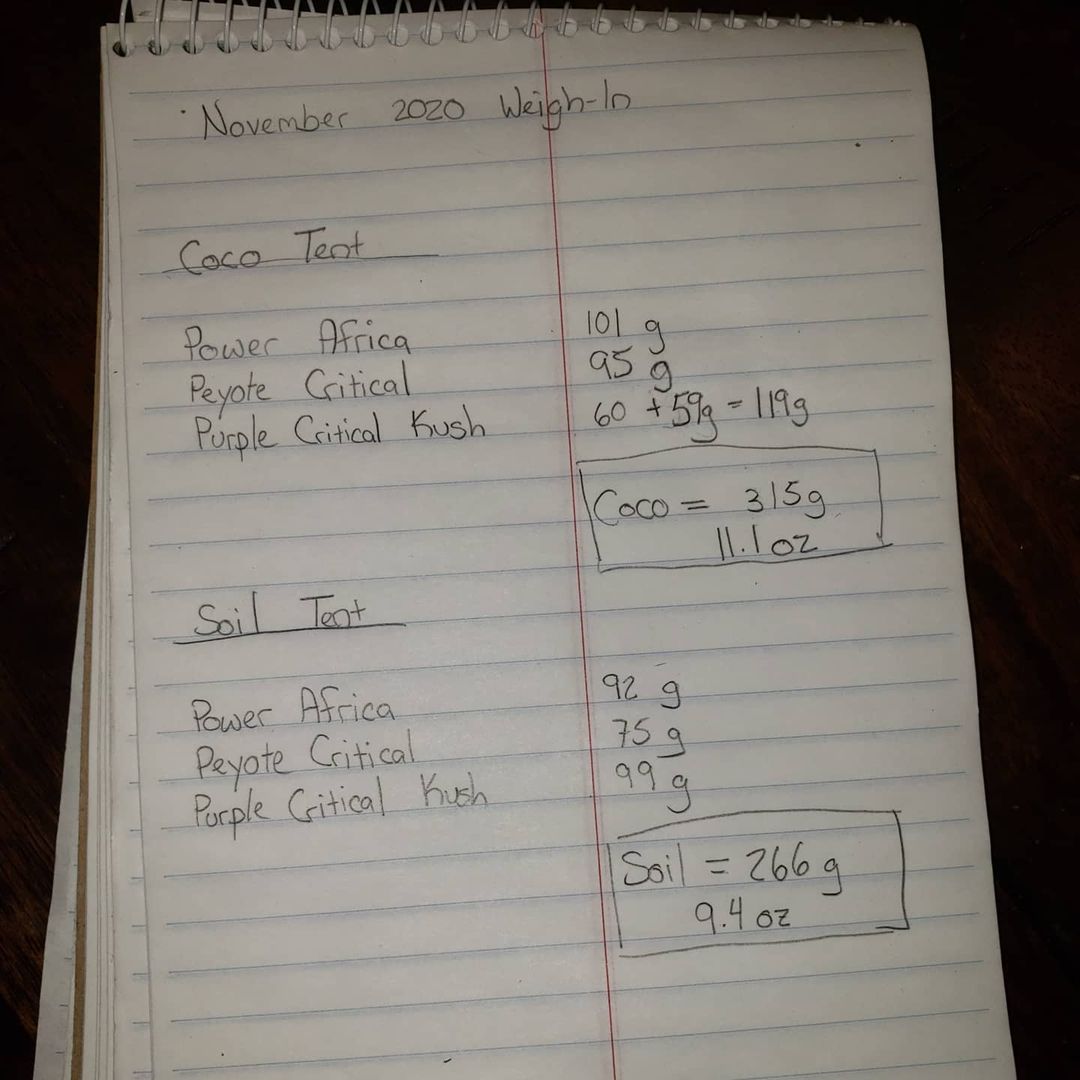 November 2020 Weigh-In
Coco Tent
Power Africa 101 g
Peyote Critical 95 g
Purple Critical Kush 60 + 59g = 119g
Coco = 315g
11.1 oz
Soil Tent
Power Africa 92 g
Peyote Critical 75 g
Purple Critical Kush 99 g
Soil = 266 g
9.4 oz